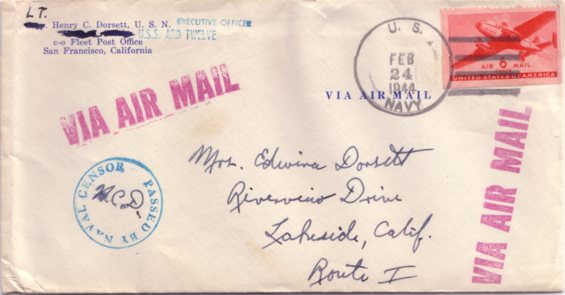 LT.
Henry C. Dorsett, U. S. N.
EXECUTIVE OFFICER
U.S.S. ARD TWELVE
c-o Fleet Post Office
San Francisco, California
VIA AIR MAIL
U. S.
FEB
24
1944
NAVY
AIR 6 MAIL
UNITED STATES OF AMERICA
VIA AIR MAIL
PASSED BY NAVAL CENSOR
H.C.D.
Mrs. Edwina Dorsett
Riverview Drive
Lakeside, Calif.
Route I
VIA AIR MAIL